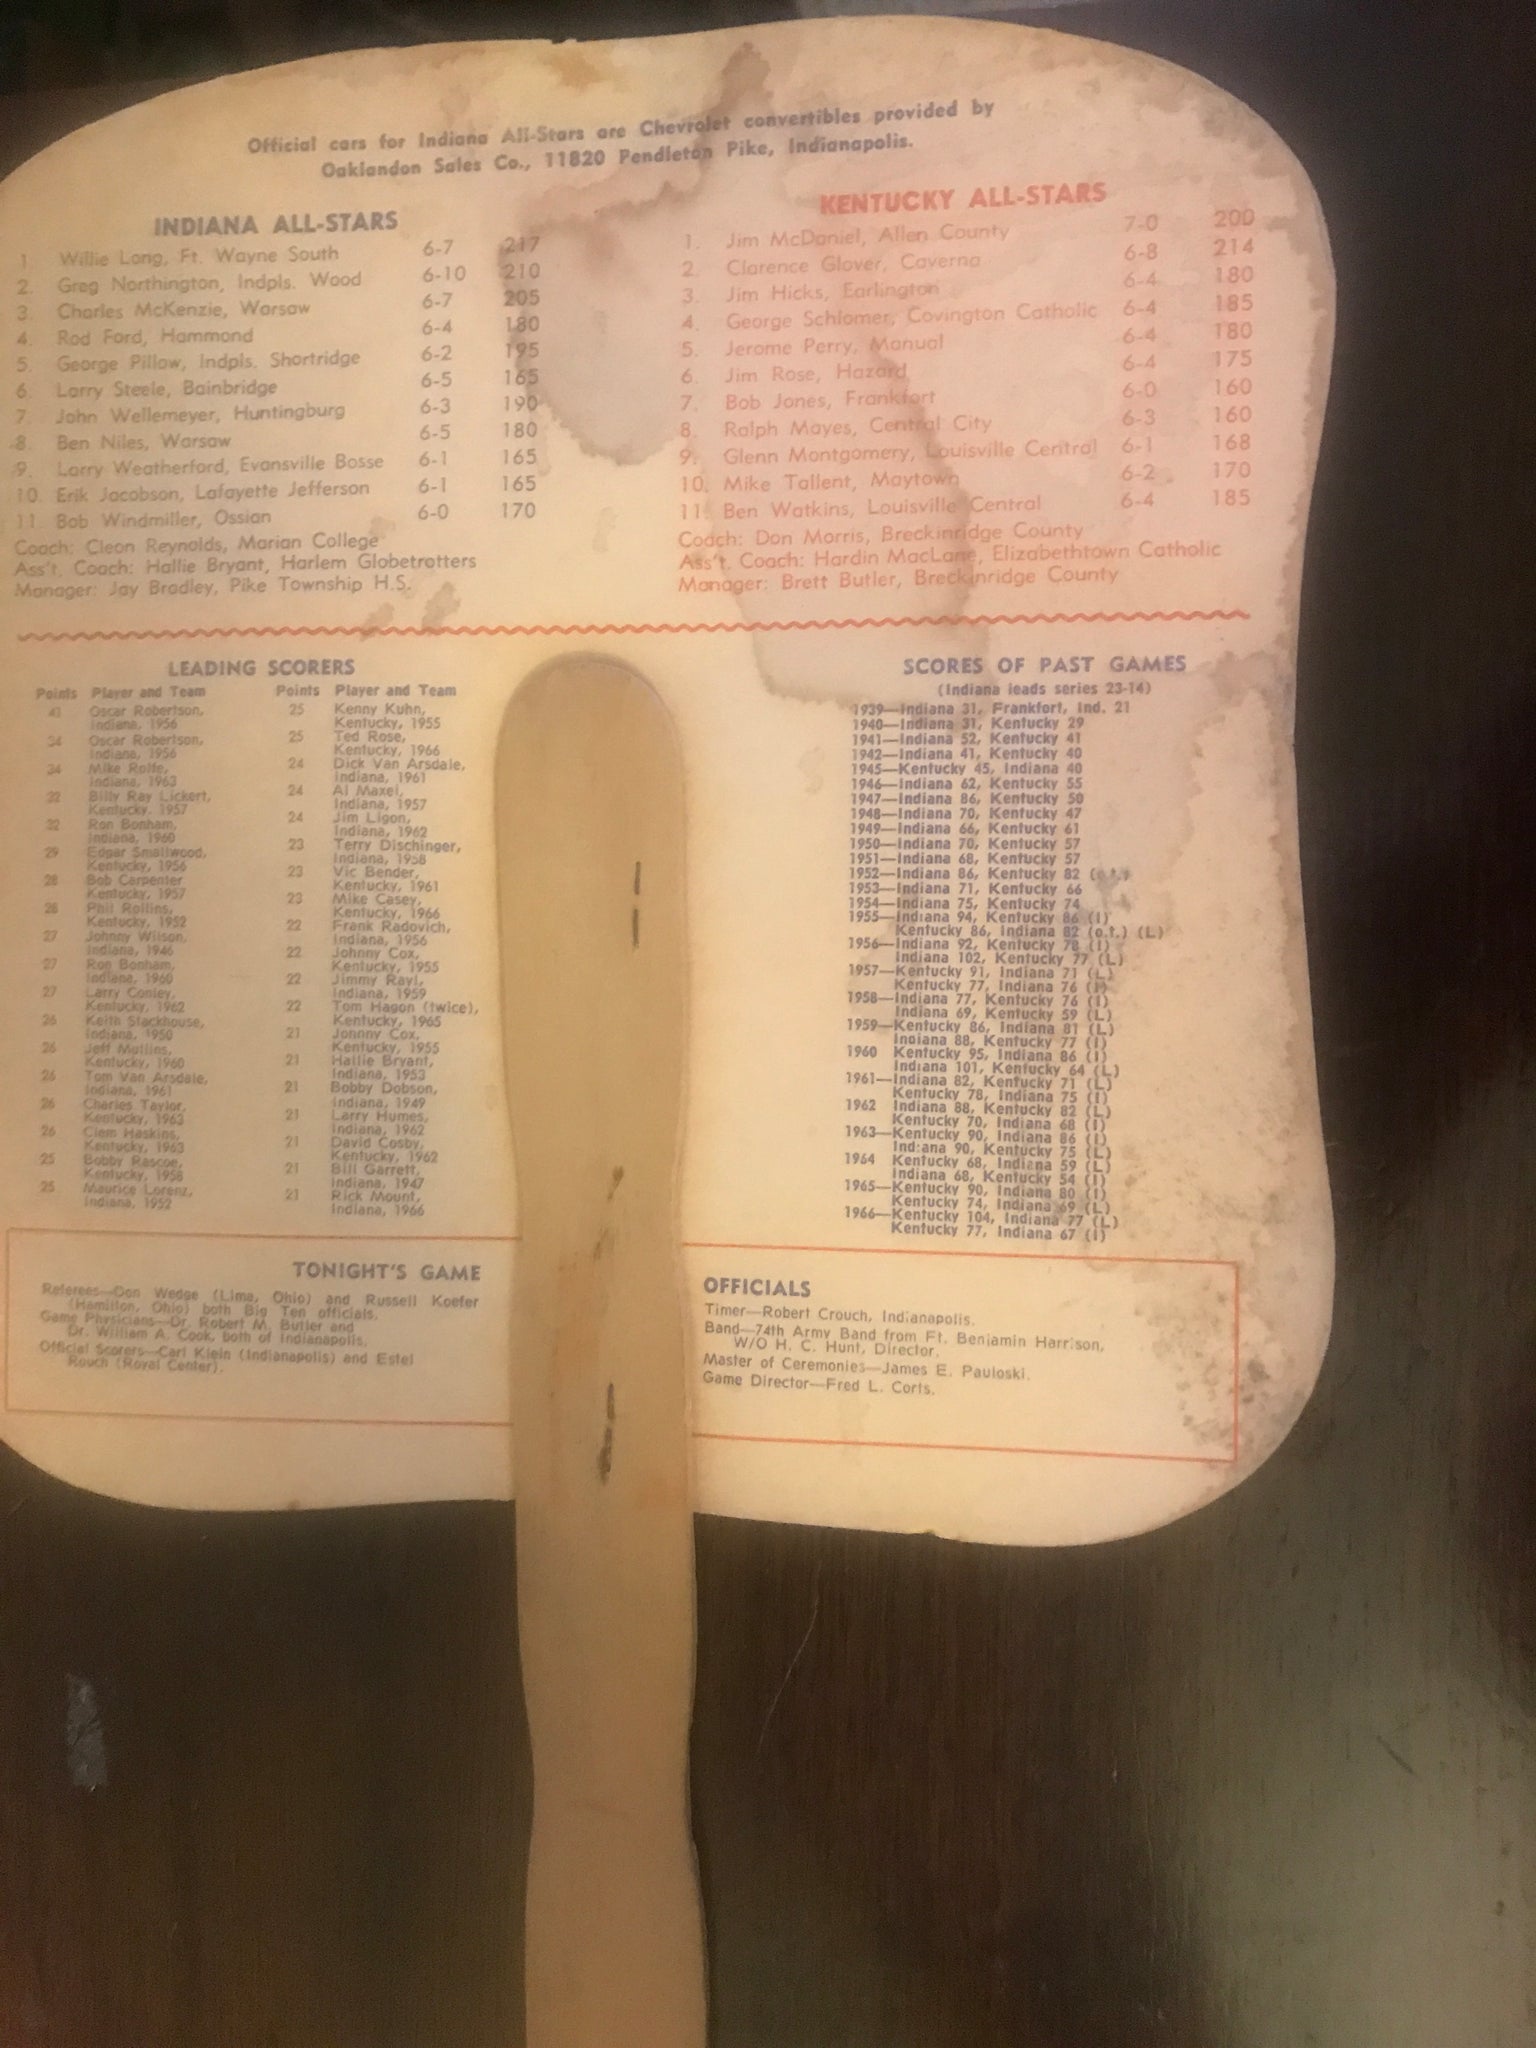 Official cars for Indiana All-Stars are Chevrolet convertibles provided by
Oaklandon Sales Co., 11820 Pendleton Pike, Indianapolis.
INDIANA ALL-STARS
1. Willie Long, Ft. Wayne South 6-7 217
2. Greg Northington, Indpls. Wood 6-10 210
3. Charles McKenzie, Warsaw 6-7 205
4. Rod Ford, Hammond 6-4 180
5. George Pillow, Indpls. Shortridge 6-2 195
6. Larry Steele, Bainbridge 6-5 165
7. John Wellemeyer, Huntingburg 6-3 190
8. Ben Niles, Warsaw 6-5 180
9. Larry Weatherford, Evansville Bosse 6-1 165
10. Erik Jacobson, Lafayette Jefferson 6-1 165
11. Bob Windmiller, Ossian 6-0 170
Coach: Cleon Reynolds, Marian College
Ass't. Coach: Hallie Bryant, Harlem Globetrotters
Manager: Jay Bradley, Pike Township H.S.
KENTUCKY ALL-STARS
1. Jim McDaniel, Allen County 7-0 200
2. Clarence Glover, Caverna 6-8 214
3. Jim Hicks, Earlington 6-4 180
4. George Schlomer, Covington Catholic 6-4 185
5. Jerome Perry, Manual 6-4 180
6. Jim Rose, Hazard 6-4 175
7. Bob Jones, Frankfort 6-0 160
8. Ralph Mayes, Central City 6-3 160
9. Glenn Montgomery, Louisville Central 6-1 168
10. Mike Tallent, Maytown 6-2 170
11. Ben Watkins, Louisville Central 6-4 185
Coach: Don Morris, Breckinridge County
Ass't. Coach: Hardin MacLane, Elizabethtown Catholic
Manager: Brett Butler, Breckinridge County
LEADING SCORERS
Points Player and Team
41 Oscar Robertson,
Indiana, 1956
34 Oscar Robertson,
Indiana, 1956
34 Mike Rolfe,
Indiana, 1963
32 Billy Ray Lickert,
Kentucky, 1957
32 Ron Bonham,
Indiana, 1960
29 Edgar Smallwood,
Kentucky, 1956
28 Bob Carpenter
Kentucky, 1957
28 Phil Rollins,
Kentucky, 1952
27 Johnny Wilson,
Indiana, 1946
27 Ron Bonham,
Indiana, 1960
27 Larry Conley,
Kentucky, 1962
26 Keith Stackhouse,
Indiana, 1950
26 Jeff Mullins,
Kentucky, 1960
26 Tom Van Arsdale,
Indiana, 1961
26 Charles Taylor,
Kentucky, 1963
26 Clem Haskins,
Kentucky, 1963
25 Bobby Rascoe,
Kentucky, 1958
25 Maurice Lorenz,
Indiana, 1952
Points Player and Team
25 Kenny Kuhn,
Kentucky, 1955
25 Ted Rose,
Kentucky, 1966
24 Dick Van Arsdale,
Indiana, 1961
24 Al Maxel,
Indiana, 1957
24 Jim Ligon,
Indiana, 1962
23 Terry Dischinger,
Indiana, 1958
23 Vic Bender,
Kentucky, 1961
23 Mike Casey,
Kentucky, 1966
22 Frank Radovich,
Indiana, 1956
22 Johnny Cox,
Kentucky, 1955
22 Jimmy Rayl,
Indiana, 1959
22 Tom Hagon (twice),
Kentucky, 1965
21 Johnny Cox,
Kentucky, 1955
21 Hallie Bryant,
Indiana, 1953
21 Bobby Dobson,
Indiana, 1949
21 Larry Humes,
Indiana, 1962
21 David Cosby,
Kentucky, 1962
21 Bill Garrett,
Indiana, 1947
21 Rick Mount,
Indiana, 1966
SCORES OF PAST GAMES
(Indiana leads series 23-14)
1939—Indiana 31, Frankfort, Ind. 21
1940—Indiana 31, Kentucky 29
1941—Indiana 52, Kentucky 41
1942—Indiana 41, Kentucky 40
1945—Kentucky 45, Indiana 40
1946—Indiana 62, Kentucky 55
1947—Indiana 86, Kentucky 50
1948—Indiana 70, Kentucky 47
1949—Indiana 66, Kentucky 61
1950—Indiana 70, Kentucky 57
1951—Indiana 68, Kentucky 57
1952—Indiana 86, Kentucky 82 (o.t.)
1953—Indiana 71, Kentucky 66
1954—Indiana 75, Kentucky 74
1955—Indiana 94, Kentucky 86 (I)
Kentucky 86, Indiana 82 (o.t.) (L)
1956—Indiana 92, Kentucky 78 (I)
Indiana 102, Kentucky 77 (L)
1957—Kentucky 91, Indiana 71 (L)
Kentucky 77, Indiana 76 (I)
1958—Indiana 77, Kentucky 76 (I)
Indiana 69, Kentucky 59 (L)
1959—Kentucky 86, Indiana 81 (L)
Indiana 88, Kentucky 77 (I)
1960 Kentucky 95, Indiana 86 (I)
Indiana 101, Kentucky 64 (L)
1961—Indiana 82, Kentucky 71 (L)
Kentucky 78, Indiana 75 (I)
1962 Indiana 88, Kentucky 82 (L)
Kentucky 70, Indiana 68 (I)
1963—Kentucky 90, Indiana 86 (I)
Indiana 90, Kentucky 75 (L)
1964 Kentucky 68, Indiana 59 (L)
Indiana 68, Kentucky 54 (I)
1965—Kentucky 90, Indiana 80 (I)
Kentucky 74, Indiana 69 (L)
1966—Kentucky 104, Indiana 77 (L)
Kentucky 77, Indiana 67 (I)
TONIGHT'S GAME
Referees—Don Wedge (Lima, Ohio) and Russell Koefer
(Hamilton, Ohio) both Big Ten officials.
Game Physicians—Dr. Robert M. Butler and
Dr. William A. Cook, both of Indianapolis.
Official Scorers—Carl Klein (Indianapolis) and Estel
Rouch (Royal Center).
OFFICIALS
Timer—Robert Crouch, Indianapolis.
Band—74th Army Band from Ft. Benjamin Harrison,
W/O H. C. Hunt, Director.
Master of Ceremonies—James E. Pauloski.
Game Director—Fred L. Corts.